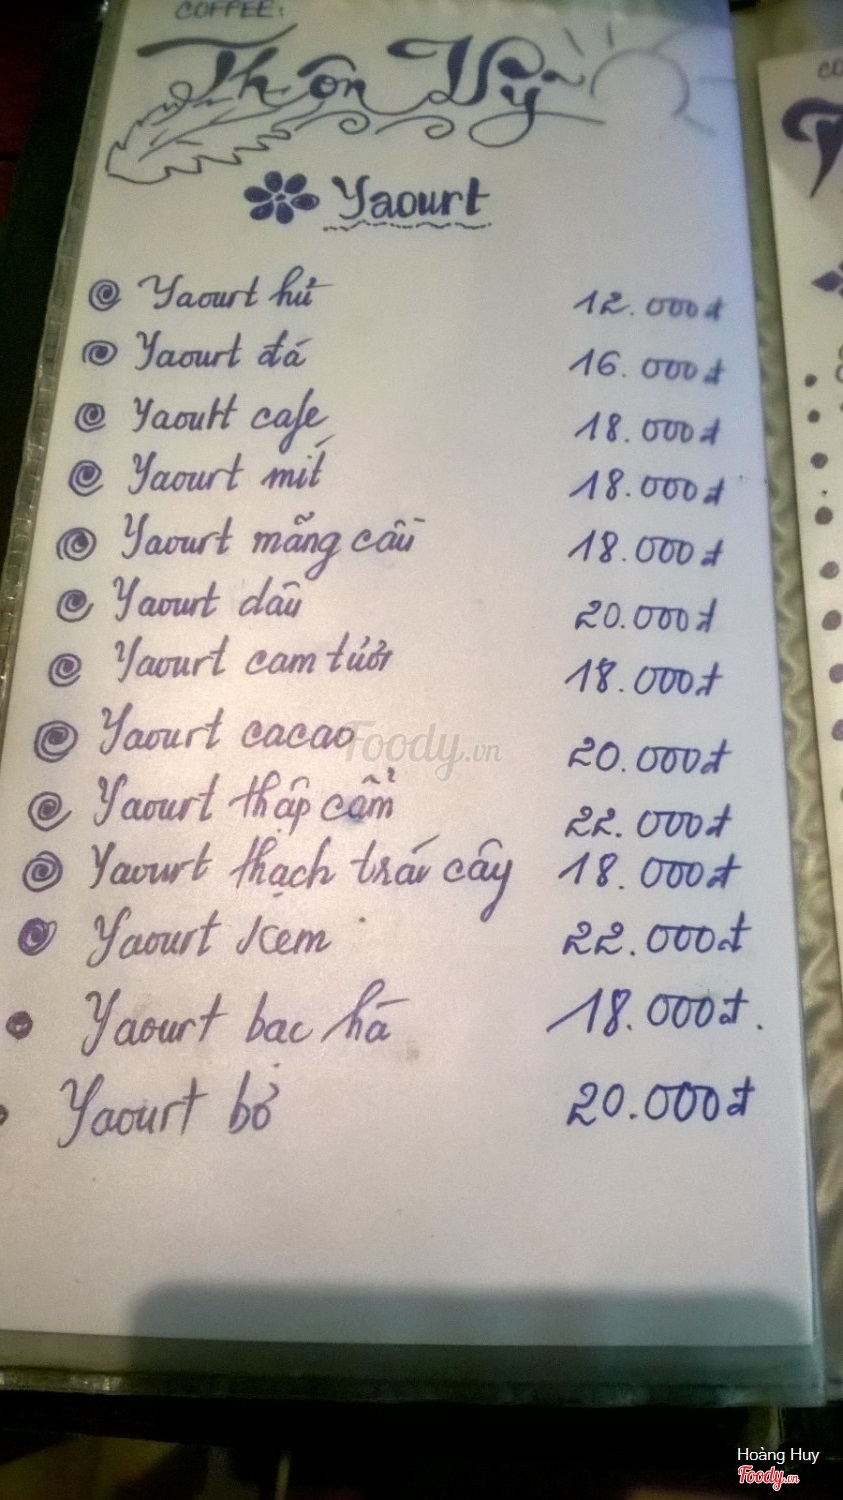 COFFEE:
Thôn Vỹ
Yaourt
Yaourt hủ 12.000đ
Yaourt đá 16.000đ
Yaourt cafe 18.000đ
Yaourt mít 18.000đ
Yaourt mãng cầu 18.000đ
Yaourt dâu 20.000đ
Yaourt cam tươi 18.000đ
Yaourt cacao 20.000đ
Foody.vn
Yaourt thập cẩm 22.000đ
Yaourt thạch trái cây 18.000đ
Yaourt kem 22.000đ
Yaourt bạc hà 18.000đ.
Yaourt bơ 20.000đ
Hoàng Huy
Foody.vn